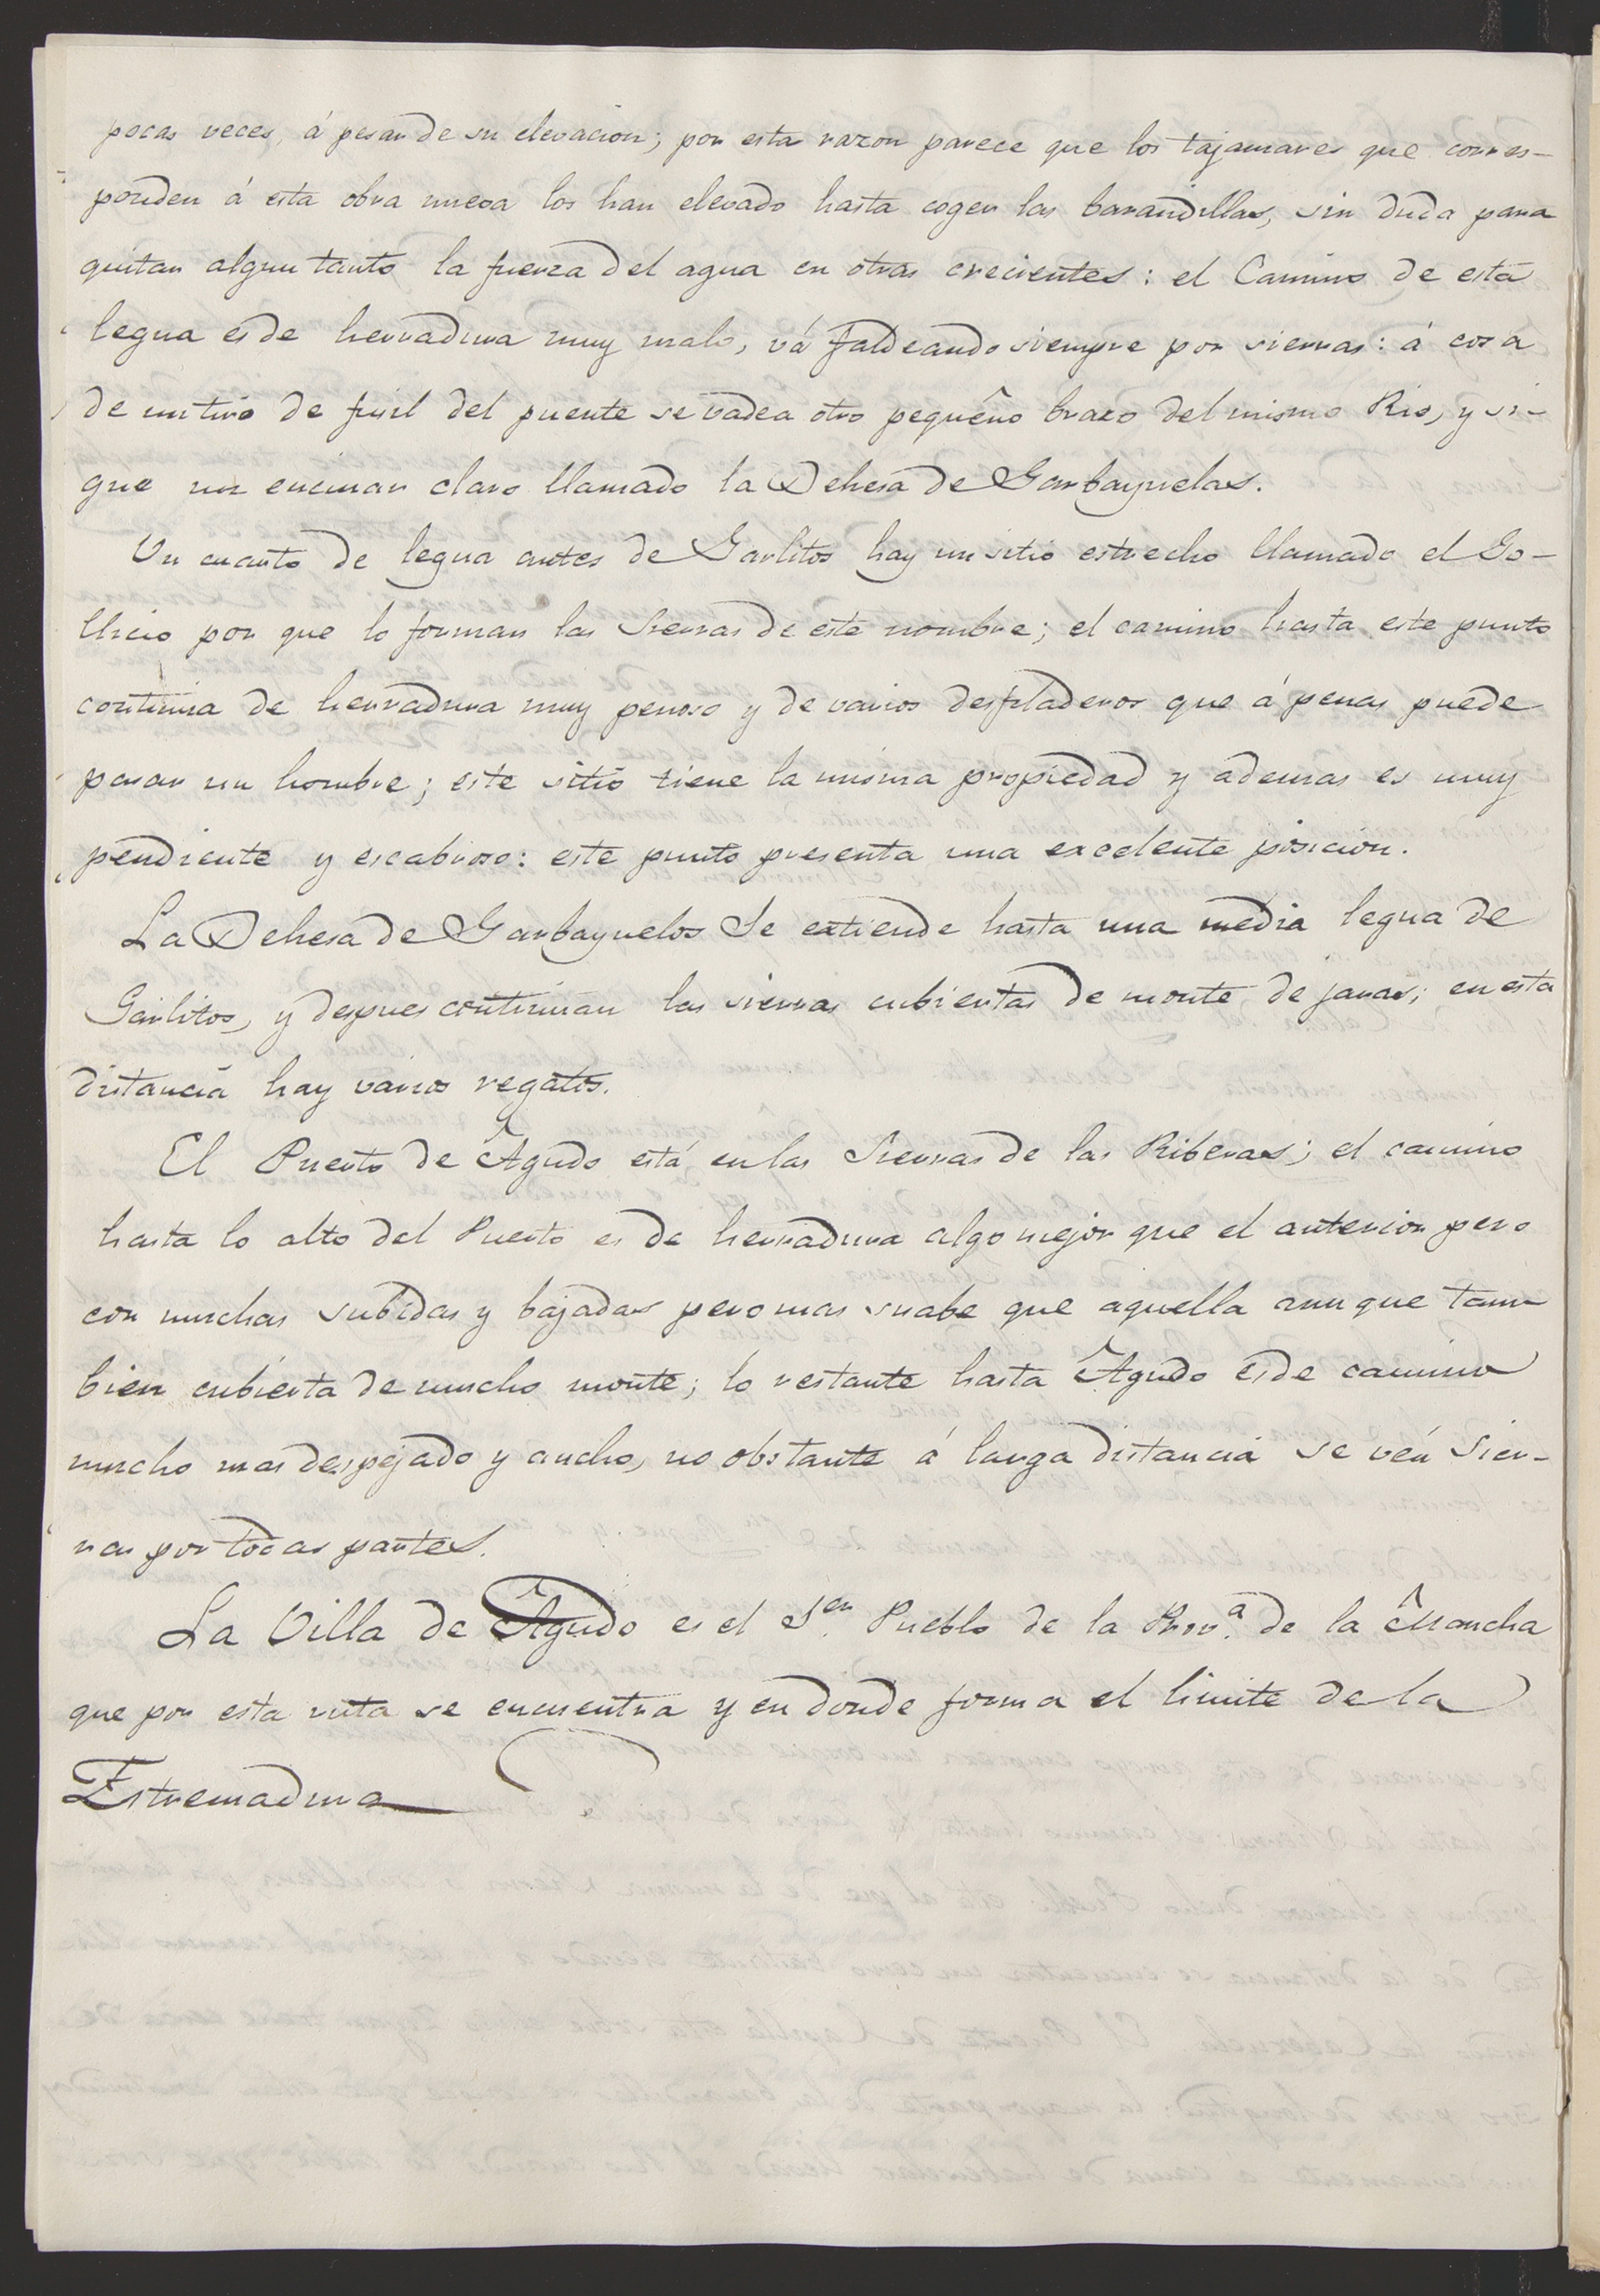 pocas veces, á pesar de su elevacion; por esta razon parece que los tajamares que corres-
ponden á esta obra nueva los han elevado hasta coger las barandillas, sin duda para
quitar algun tanto la fuerza del agua en otras crecientes: el Camino de esta
legua es de herradura muy malo, vá faldeando siempre por sierras: á cosa
de un tiro de fusil del puente se vadea otro pequeño brazo del mismo Rio, y si-
gue un encinar claro llamado la Dehesa de Garbayuelas.
Un cuarto de legua antes de Garlitos hay un sitio estrecho llamado el Go-
llicio por que lo forman las Sierras de este nombre; el camino hasta este punto
continua de herradura muy penoso y de varios desfiladeros que á penas puede
pasar un hombre; este sitio tiene la misma propiedad y ademas es muy
pendiente y escabroso: este punto presenta una excelente posicion.
La Dehesa de Garbayuelos Se extiende hasta una media legua de
Garlitos, y depues continuan las sierras cubiertas de monte de jaras; en esta
distancia hay varios regatos.
El Puerto de Agudo está en las Sierras de las Riberas; el camino
hasta lo alto del Puerto es de herradura algo mejor que el anterior pero
con muchas subidas y bajadas pero mas suabe que aquella aunque tam-
bien cubierta de mucho monte; lo restante hasta Agudo es de camino
mucho mas despejado y ancho, no obstante á larga distancia se vén Sier-
ras por todas partes.
La Villa de Agudo es el 1.er Pueblo de la Prov.a de la Mancha
que por esta ruta se encuentra y en donde forma el limite de la
Estremadura